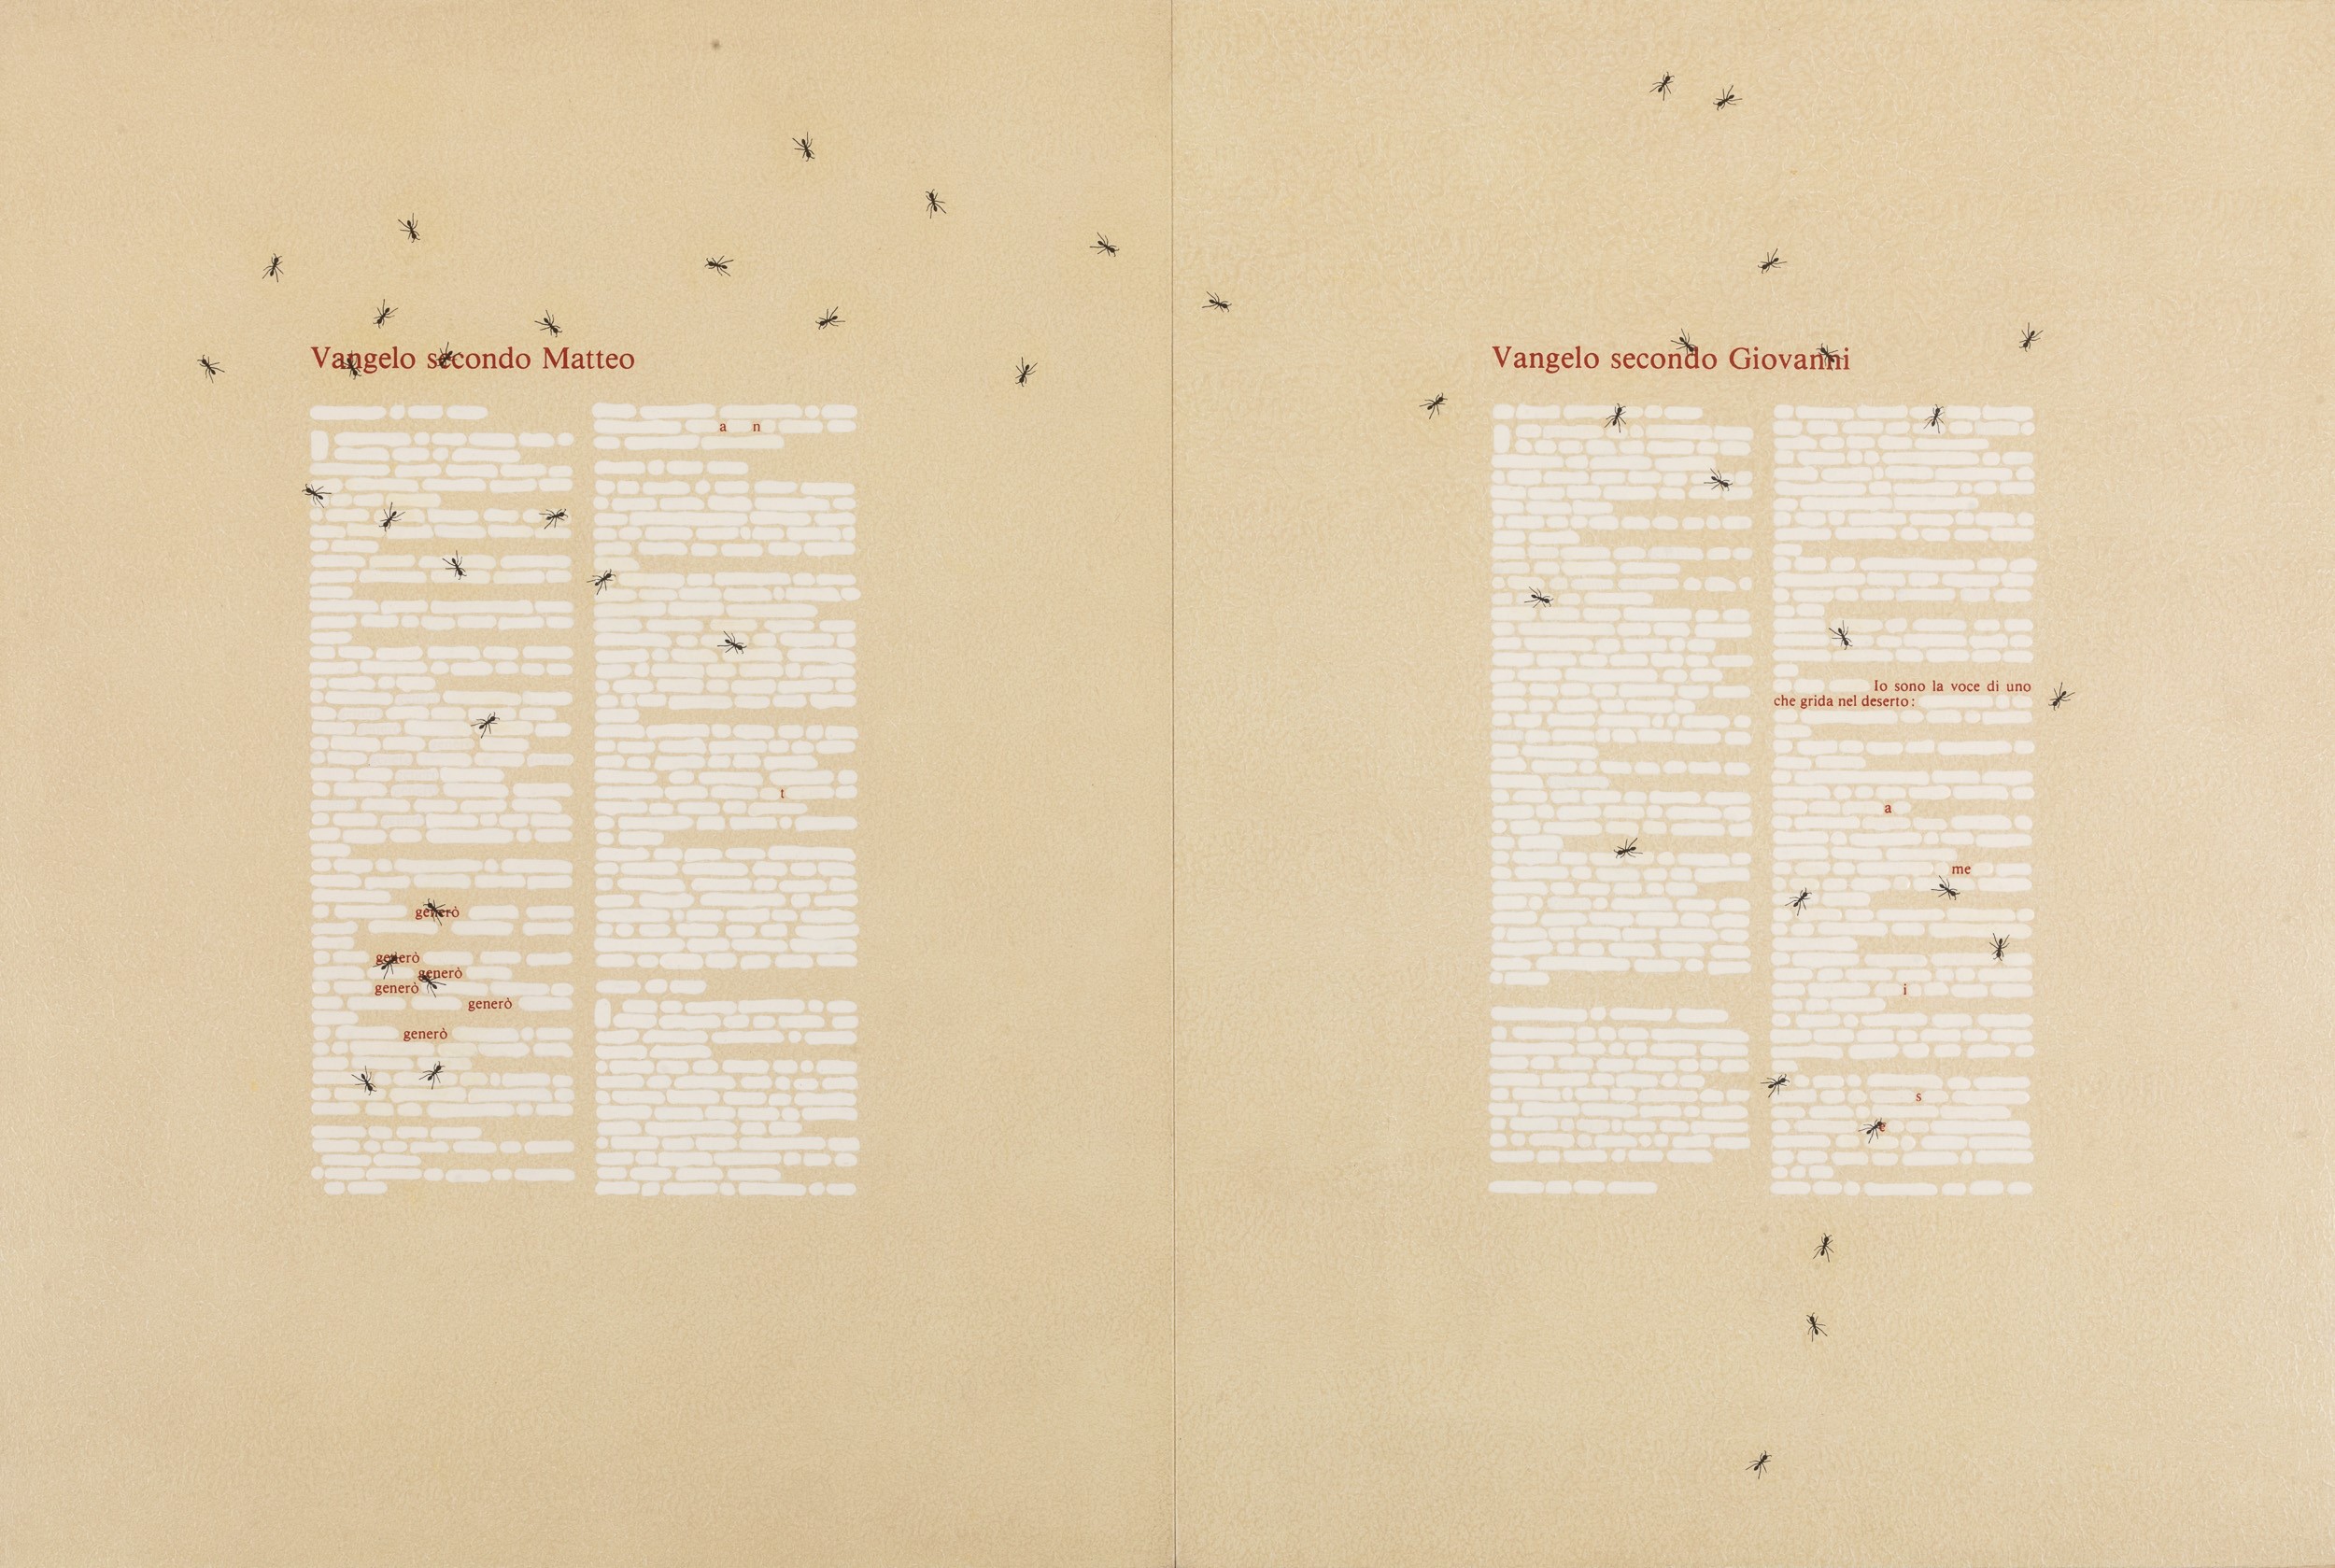 Vangelo secondo Matteo
generò
generò
generò
generò
generò
generò
a n
t
Vangelo secondo Giovanni
Io sono la voce di uno
che grida nel deserto:
a
me
i
s
e